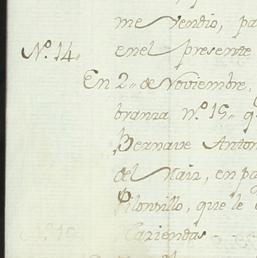 me vendio, pa
Nº. 14. enel presente
En 2„ de Noviembre,
branza nº. 15„ q
Bernave Anton
del Mair, en pa
Pilonvillo, que le
Haziendas